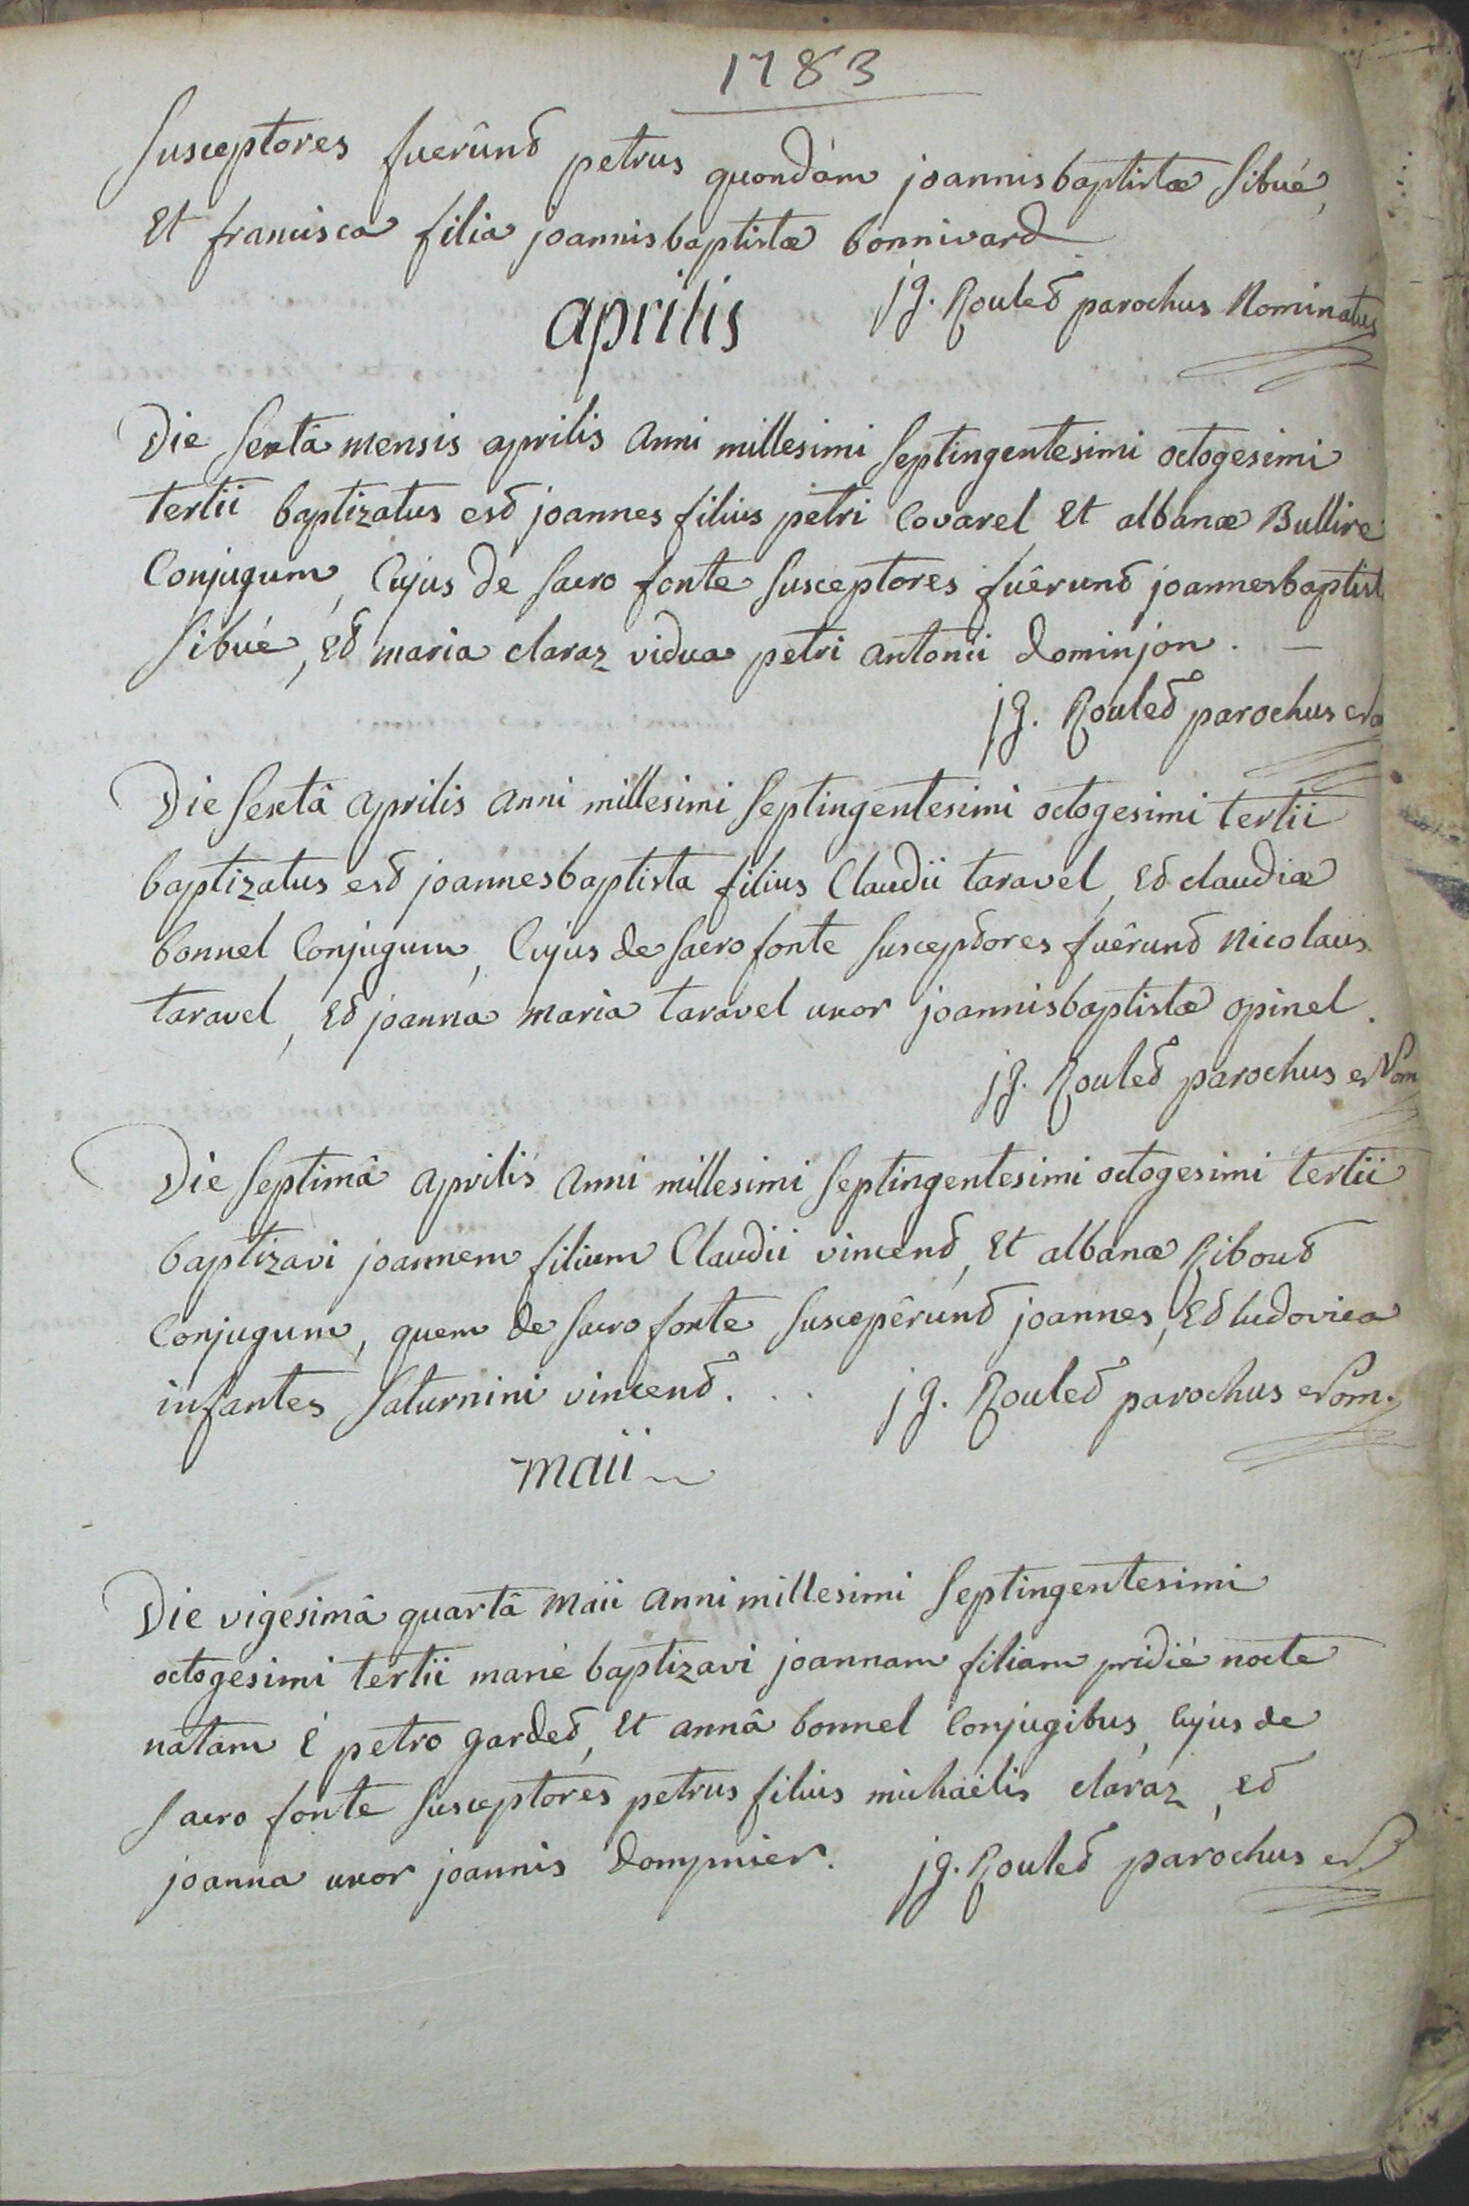 1783
Susceptores fuêrunt petrus quondàm joannisbaptistæ Sibué,
Et francisca filia joannisbaptistæ bonnivard
jg. Roulet parochus Nominatus
aprilis
Die Sextâ mensis aprilis anni millesimi Septingentesimi octogesimi
tertii baptizatus est joannes filius petri Covarel Et albanæ Bullire
Conjugum, Cujus de Sacro fonte Susceptores fuêrunt joannesbaptist
Sibué, Et maria claraz vidua petri antonii dominjon. —
jg. Roulet parochus No
Die Sextâ aprilis anni millesimi Septingentesimi octogesimi tertii
baptizatus est joannesbaptista filius Claudii taravel, Et claudiæ
bonnel Conjugum, Cujus de Sacro fonte Susceptores fuêrunt Nicolaus
taravel, Et joanna maria taravel uxor joannisbaptistæ opinel.
jg. Roulet parochus Nom
Die Septimâ aprilis anni millesimi Septingentesimi octogesimi tertii
baptizavi joannem filium Claudii vincent, Et albanæ Ribout
Conjugum, quem de Sacro fonte Suscepêrunt joannes, Et ludovica
infantes Saturnini vincent. . . jg. Roulet parochus Nom.
maii
Die vigesimâ quartâ maii anni millesimi Septingentesimi
octogesimi tertii manè baptizavi joannam filiam pridiè nocte
natam è petro gardet, Et annâ bonnel Conjugibus, Cujus de
Sacro fonte Susceptores petrus filius michaëlis claraz, Et
joanna uxor joannis dompnier. jg. Roulet parochus N.